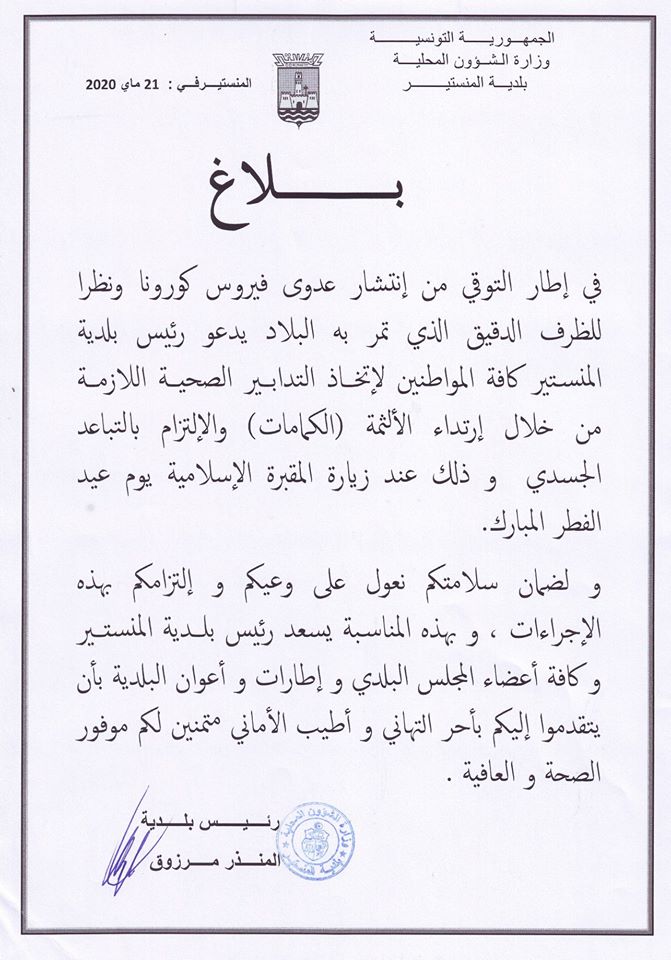 الجمهورية التونسية
وزارة الشؤون المحلية
بلدية المنستير
المنستيرفي : 21 ماي 2020
بلاغ
في إطار التوقي من إنتشار عدوى فيروس كورونا ونظرا
للظرف الدقيق الذي تمر به البلاد يدعو رئيس بلدية
المنستير كافة المواطنين لإتخاذ التدابير الصحية اللازمة
من خلال إرتداء الألثمة (الكمامات) والإلتزام بالتباعد
الجسدي و ذلك عند زيارة المقبرة الإسلامية يوم عيد
الفطر المبارك.
و لضمان سلامتكم نعول على وعيكم و إلتزامكم بهذه
الإجراءات ، و بهذه المناسبة يسعد رئيس بلدية المنستير
و كافة أعضاء المجلس البلدي و إطارات و أعوان البلدية بأن
يتقدموا إليكم بأحر التهاني و أطيب الأماني متمنين لكم موفور
الصحة و العافية .
رئيس بلدية
المنذر مرزوق
وزارة الشؤون المحلية
بلدية المنستير